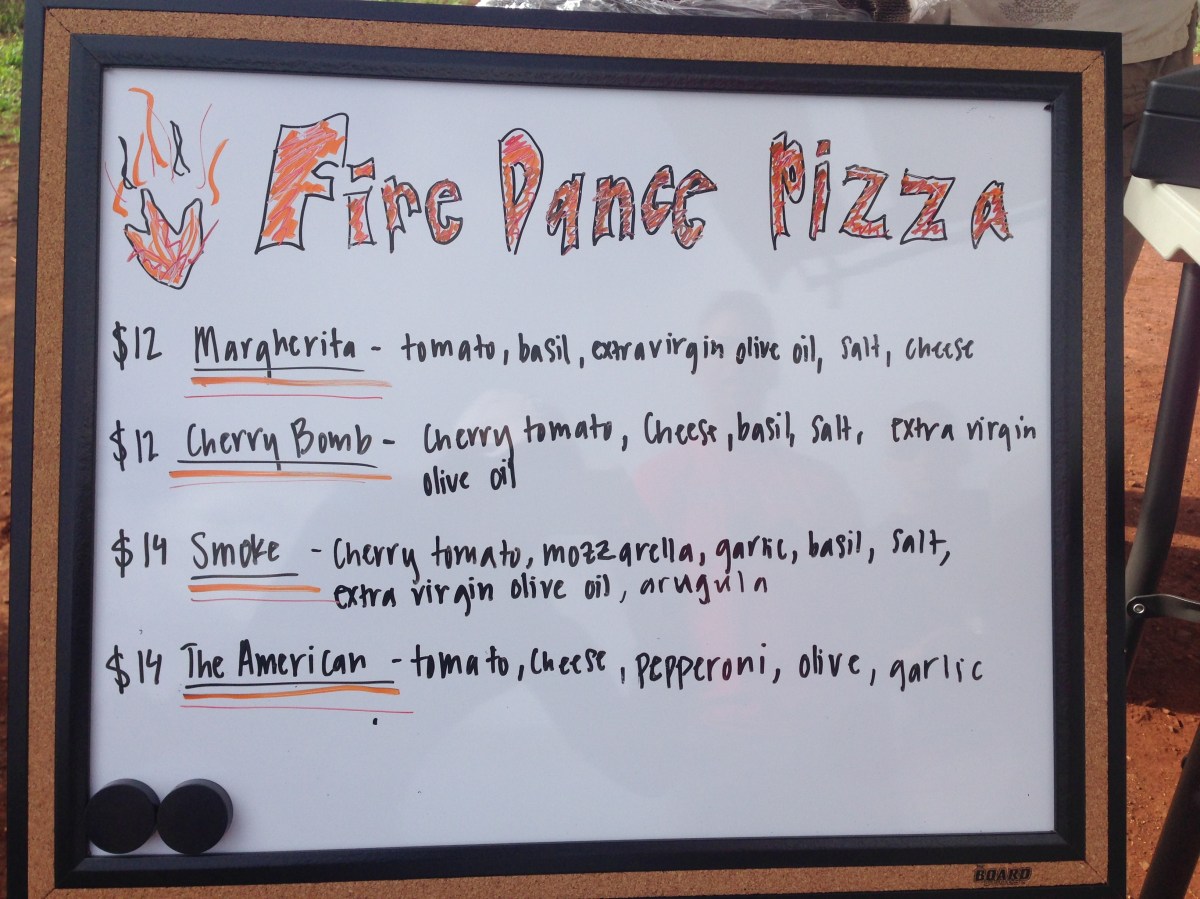 Fire Dance Pizza
$12 Margherita - tomato, basil, extra virgin olive oil, salt, cheese
$12 Cherry Bomb - Cherry tomato, Cheese, basil, salt, extra virgin
olive oil
$14 Smoke - Cherry tomato, mozzarella, garlic, basil, salt,
extra virgin olive oil, arugula
$14 The American - tomato, Cheese, pepperoni, olive, garlic
BOARD